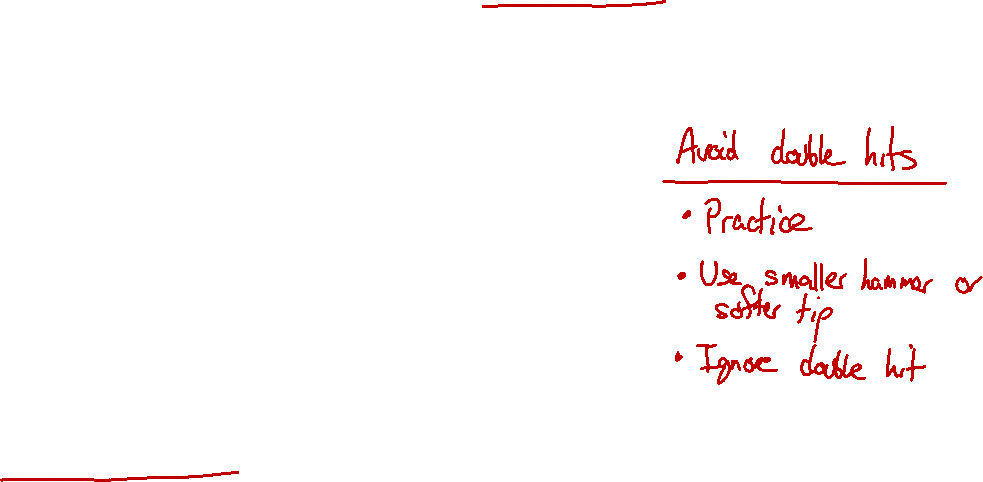 Avoid double hits
• Practice
• Use smaller hammer or
softer tip
• Ignore double hit